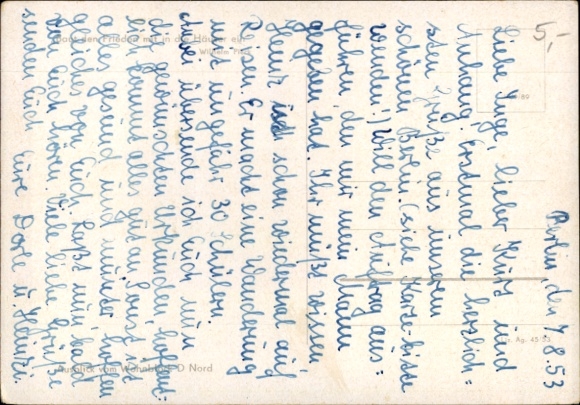 Berlin, den 7.8.53
Liebe Inge, lieber Kurt und
Anhang! Erstmal die herzlich=
sten Grüße aus unserem
schönen Berlin. (siehe Karte-bitte
wenden!) Will den Auftrag aus=
führen, den mir mein Mann
gegeben hat. Ihr müßt wissen
Heinz ist schon wiedermal auf
Reisen. Er macht eine Wanderung
mit ungefähr 30 Schülern.
Also übersende ich Euch nun
die gewünschten Urkunden, hoffent-
lich kommt alles gut an. Sonst ist
alles gesund und munter, hoffen
gleiches von Euch. Laßt nun bald
von Euch hören. Viele liebe Grüße
senden Euch Eure Dore u. Heinz.
5,-
Tragt den Frieden mit in die Häuser ein
Wilhelm Pieck
Ausblick vom Wohnblock D Nord
Ag. 45 53